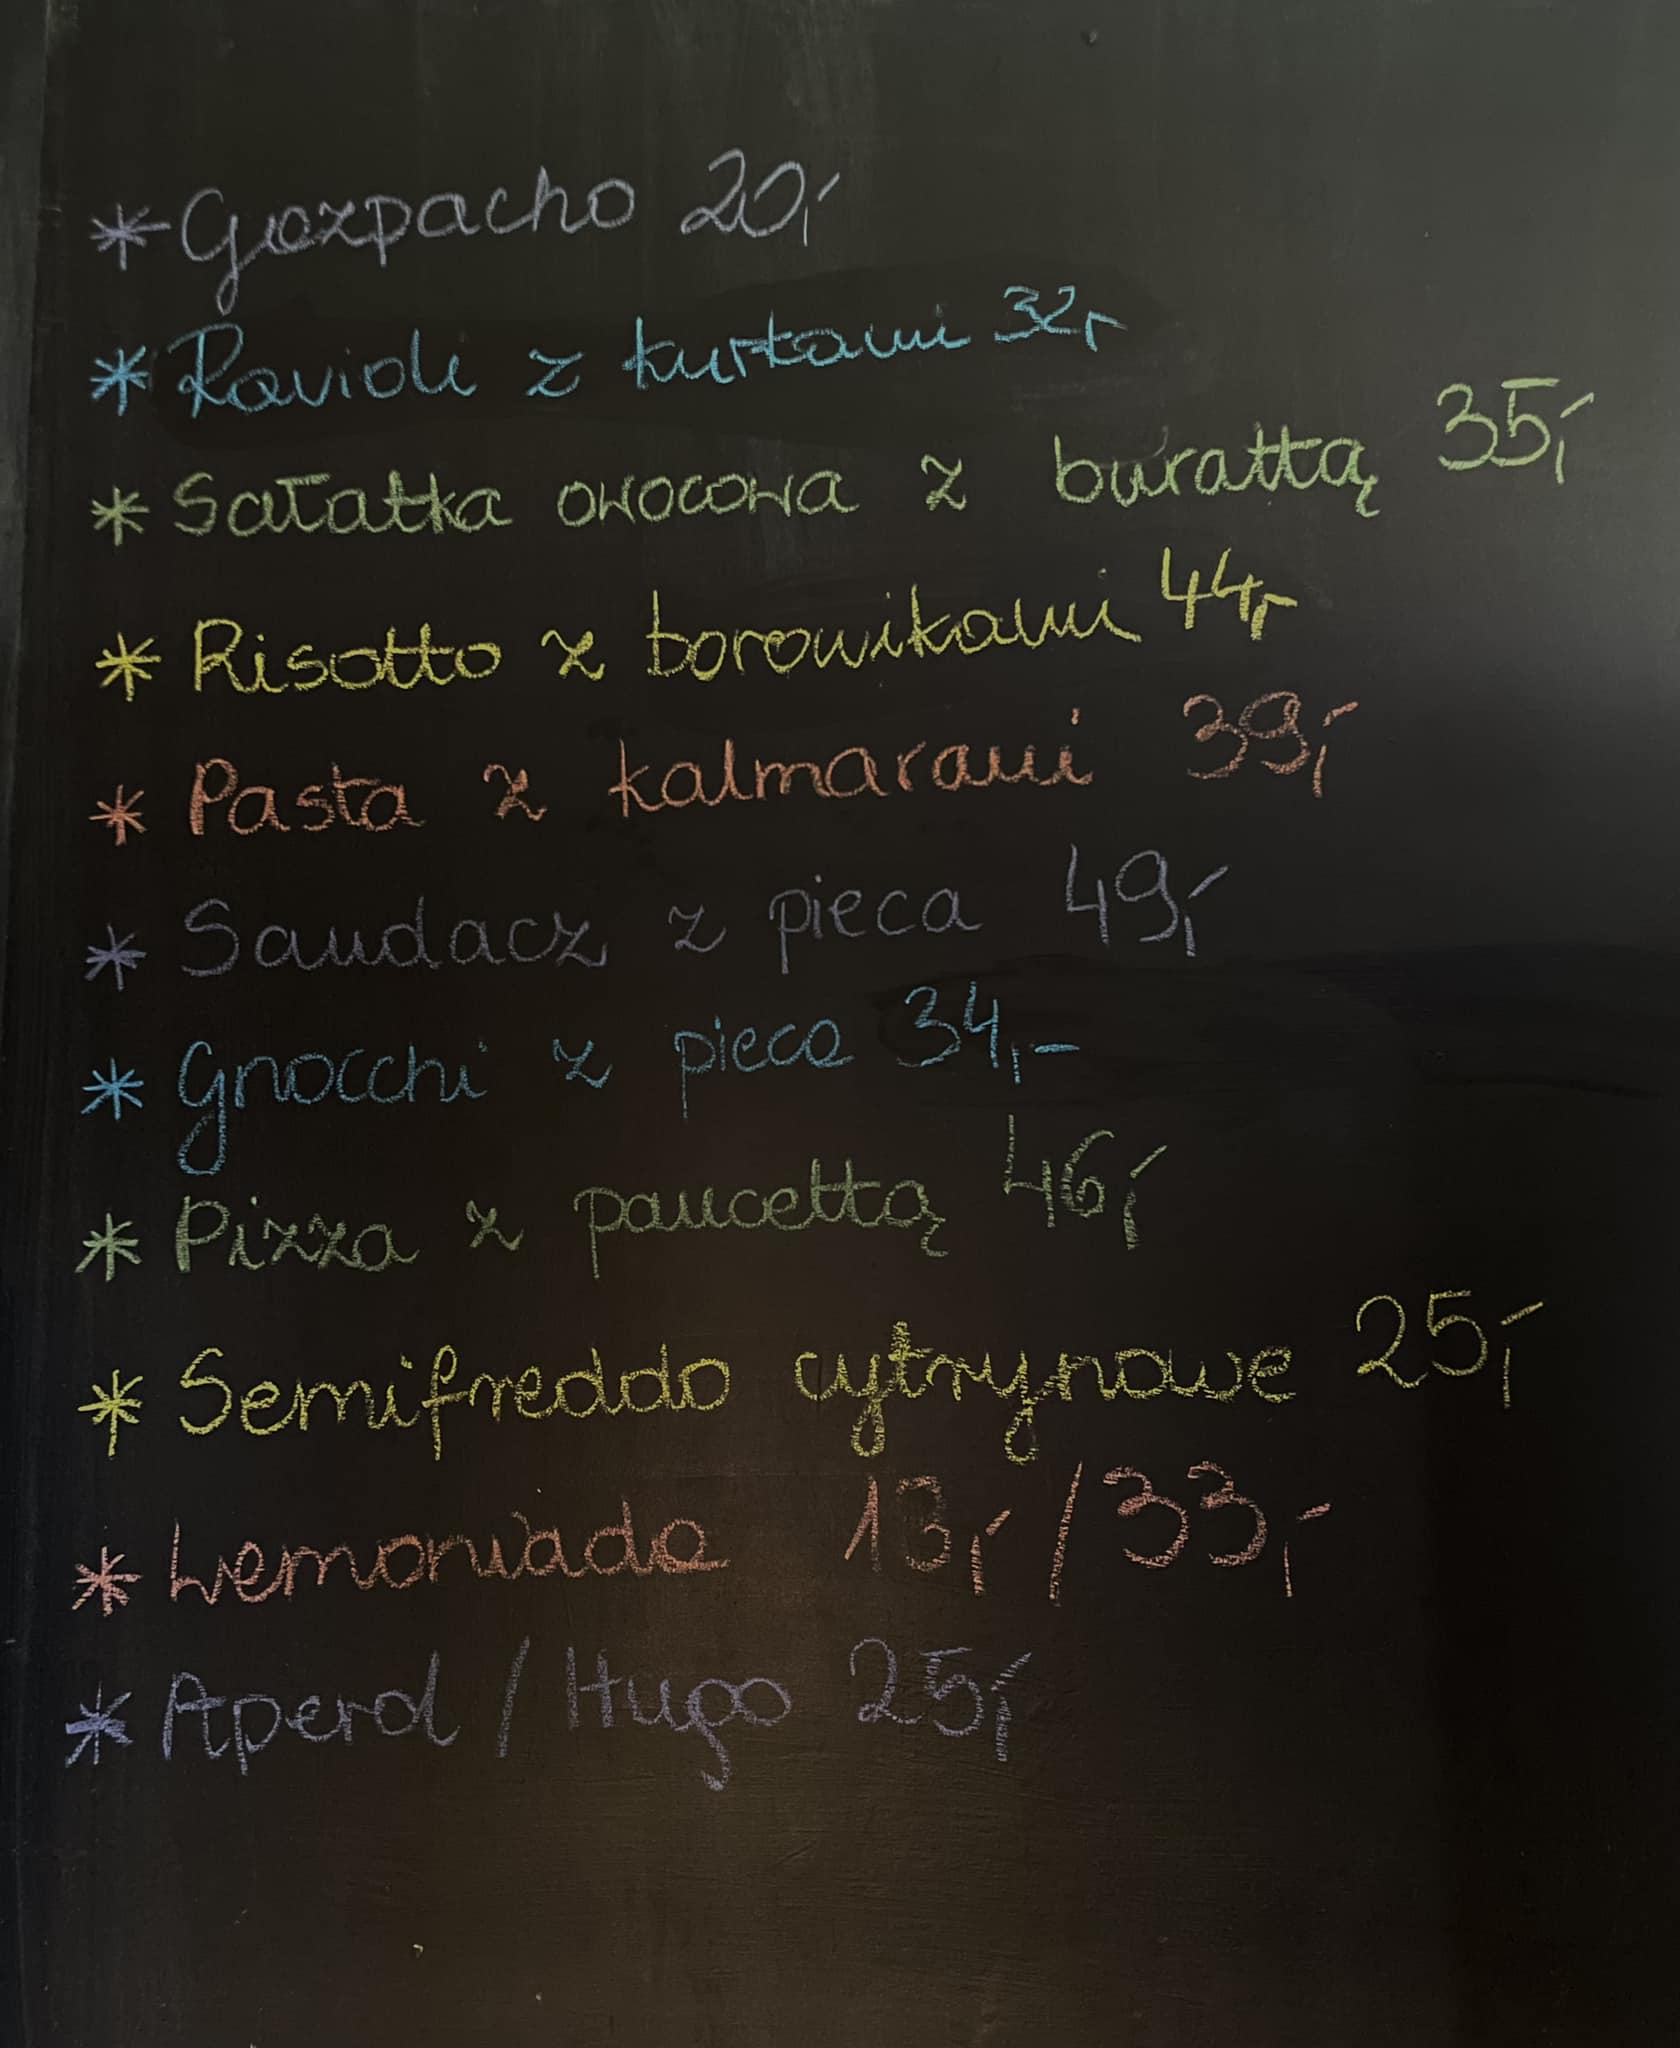 * Gazpacho 20,-
* Ravioli z kurkami 32,-
* Sałatka owocowa z burattą 35,-
* Risotto z borowikami 44,-
* Pasta z kalmarami 39,-
* Sandacz z pieca 49,-
* Gnocchi z pieca 34,-
* Pizza z pancettą 46,-
* Semifreddo cytrynowe 25,-
* Lemoniada 13,- / 33,-
* Aperol / Hugo 25,-